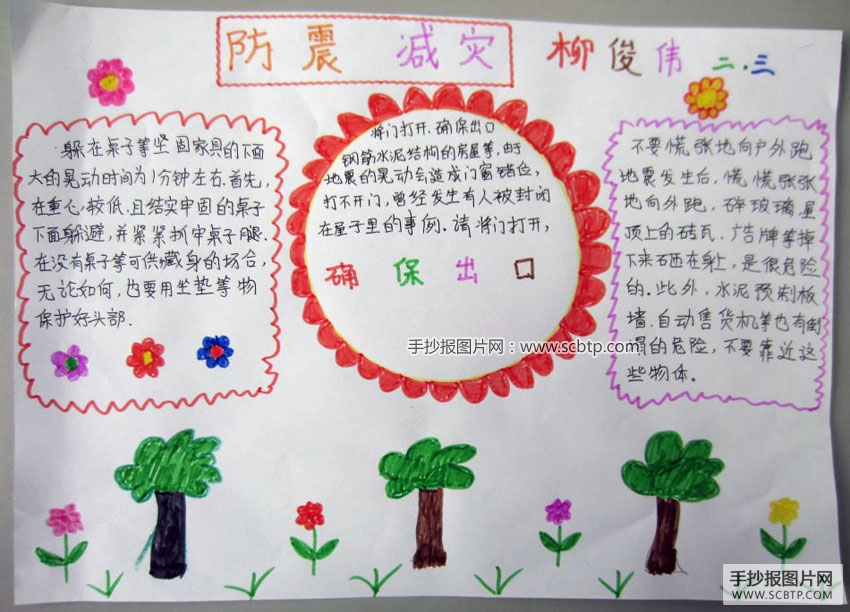 防震 减灾 柳俊伟 二.三
躲在桌子等坚固家具的下面
大的晃动时间为1分钟左右.首先,
在重心较低.且结实牢固的桌子
下面躲避,并紧紧抓牢桌子腿.
在没有桌子等可供藏身的场合,
无论如何,也要用坐垫等物
保护好头部.
将门打开.确保出口
钢筋水泥结构的房屋等,由于
地震的晃动会造成门窗错位,
打不开门,曾经发生有人被封闭
在屋子里的事例.请将门打开,
确保出口
不要慌张地向户外跑
地震发生后,慌慌张张
地向外跑,碎玻璃.屋
顶上的砖瓦.广告牌等掉
下来砸在身上,是很危险
的.此外,水泥预制板
墙.自动售货机等也有倒
塌的危险,不要靠近这
些物体.
手抄报图片网:www.scbtp.com
手抄报图片网
WWW.SCBTP.COM